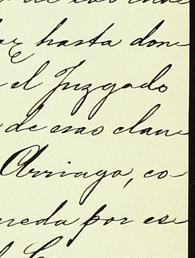 hasta don
el Juzgado
de esas clau
Arriaga, co
queda por es